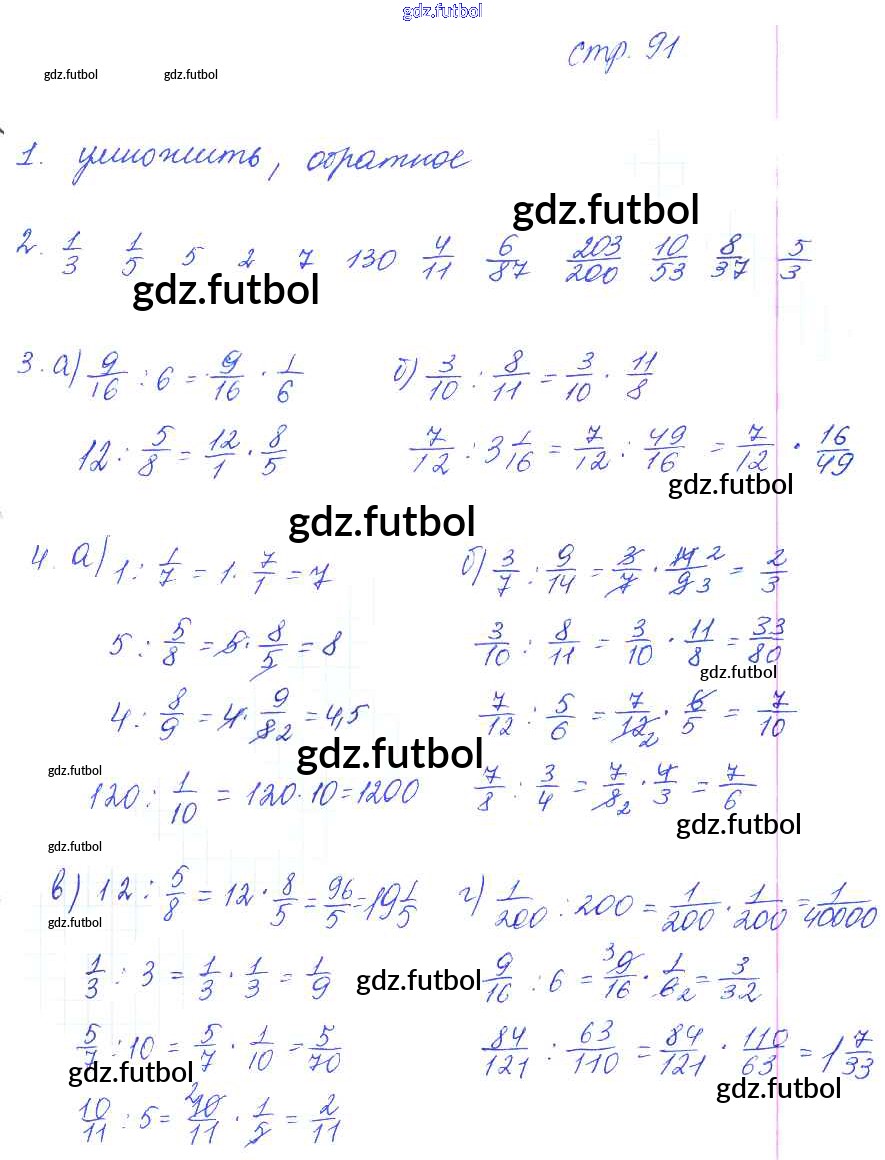 gdz.futbol
стр. 91
gdz.futbol gdz.futbol
1. умножить, обратное
gdz.futbol
2. 1/3 1/5 5 2 7 130 4/11 6/87 203/200 10/53 8/37 5/3
gdz.futbol
3. а) 9/16 : 6 = 9/16 · 1/6 б) 3/10 : 8/11 = 3/10 · 11/8
12 : 5/8 = 12/1 · 8/5 7/12 : 3 1/16 = 7/12 : 49/16 = 7/12 · 16/49
gdz.futbol
gdz.futbol
4. а) 1 : 1/7 = 1 · 7/1 = 7 б) 3/7 : 9/14 = 3/7 · 14 2/9 3 = 2/3
5 : 5/8 = 5 · 8/5 = 8 3/10 : 8/11 = 3/10 · 11/8 = 33/80
gdz.futbol
4 : 8/9 = 4 · 9/8 2 = 4,5 7/12 : 5/6 = 7/12 2 · 6/5 = 7/10
gdz.futbol
gdz.futbol
120 : 1/10 = 120 · 10 = 1200 7/8 : 3/4 = 7/8 2 · 4/3 = 7/6
gdz.futbol
gdz.futbol
в) 12 : 5/8 = 12 · 8/5 = 96/5 = 19 1/5 г) 1/200 : 200 = 1/200 · 1/200 = 1/40000
gdz.futbol
1/3 : 3 = 1/3 · 1/3 = 1/9 9/16 : 6 = 3 9/16 · 1/6 2 = 3/32
gdz.futbol
5/7 : 10 = 5/7 · 1/10 = 5/70 84/121 : 63/110 = 84/121 · 110/63 = 1 7/33
gdz.futbol gdz.futbol
10/11 : 5 = 2 10/11 · 1/5 = 2/11